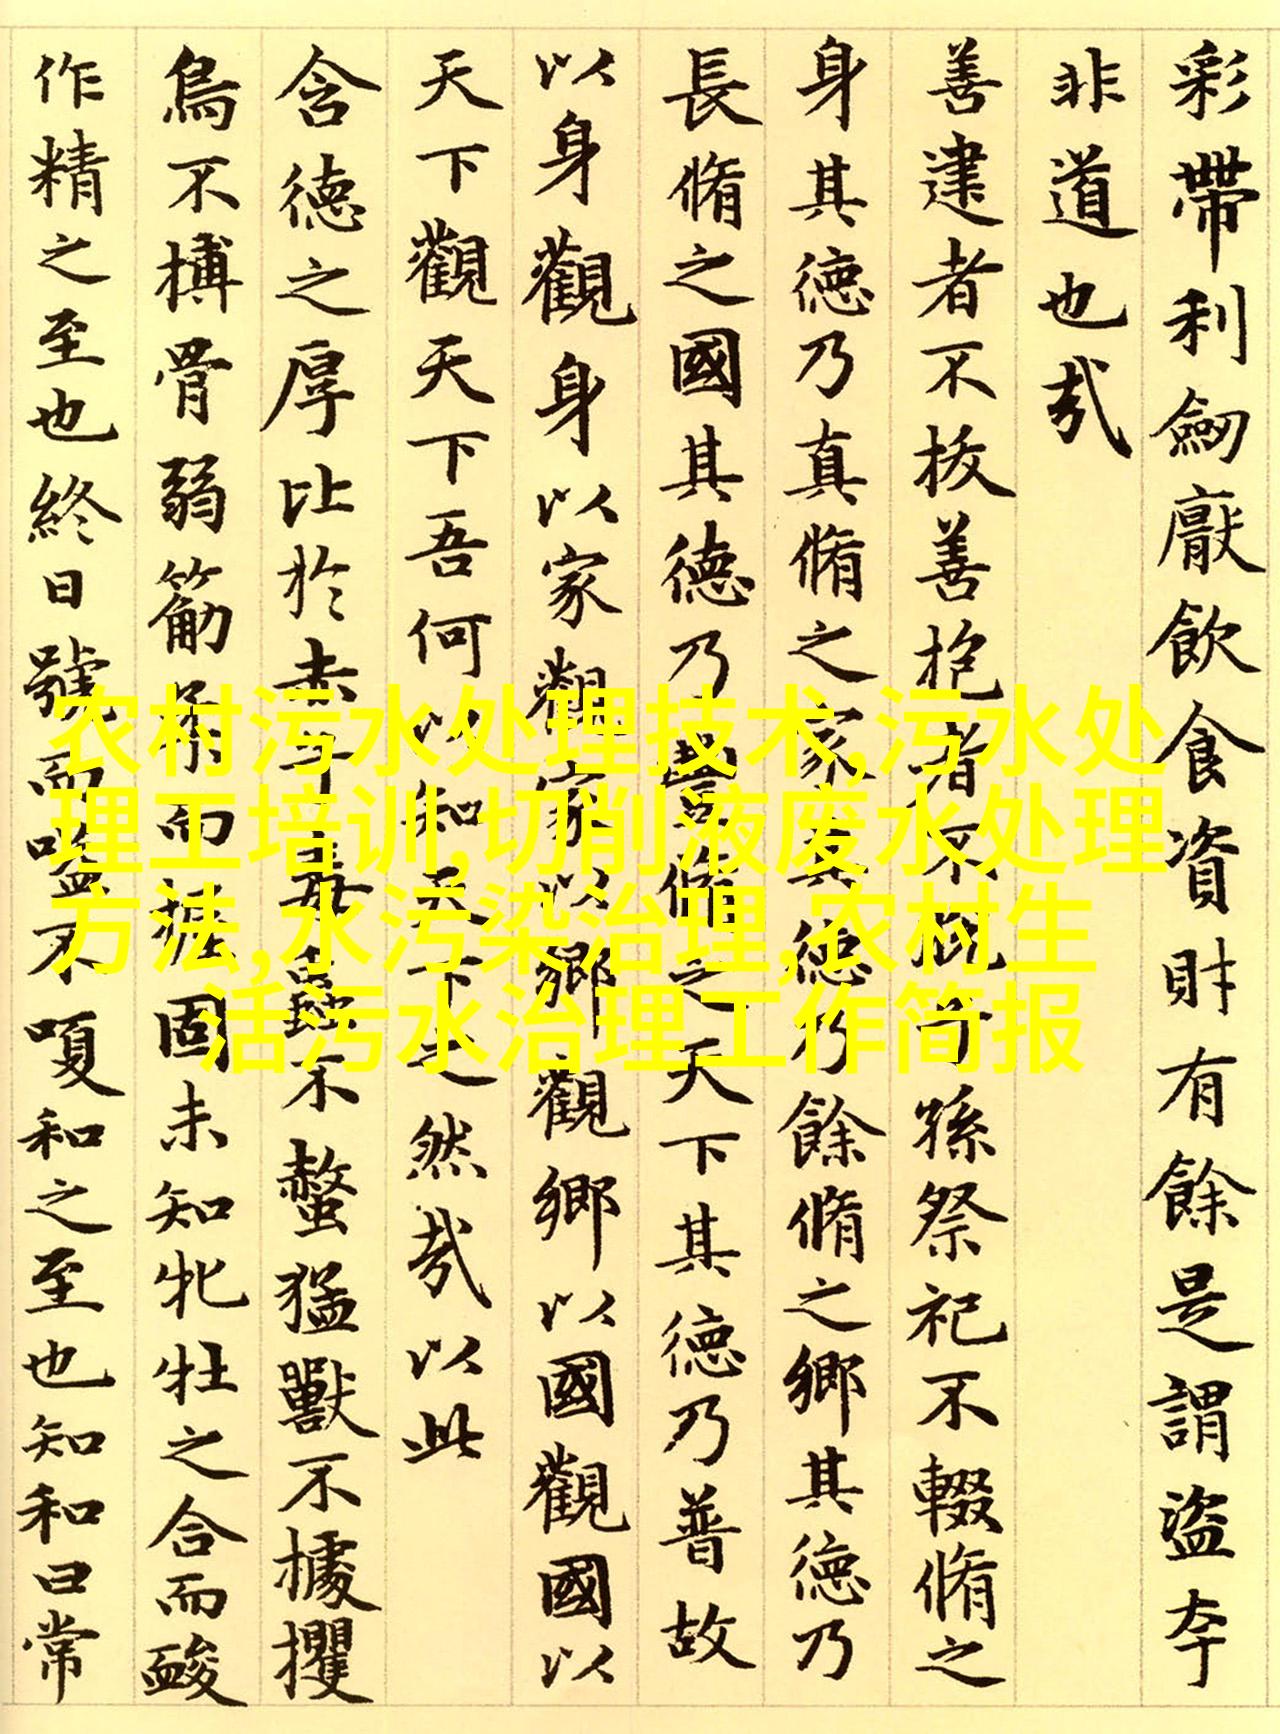 彩帶利劒厭飲食資財有餘是謂盜夸
非道也哉
善建者不拔善抱者不脱子孫祭祀不輟脩之
身其德乃真脩之家其德乃餘脩之鄉其德乃
長脩之國其德乃豐脩之天下其德乃普故
以身觀身以家觀家以鄉觀鄉以國觀國以
天下觀天下吾何以知天下之然哉以此
含德之厚比於赤子毒蟲不螫猛獸不據攫
鳥不搏骨弱筋柔而握固未知牝牡之合而
作精之至也終日號而嗌不嗄和之至也知和曰常
农村污水处理技术,污水处
理工培训,切削液废水处理
方法,水污染治理,农村生
活污水治理工作简报